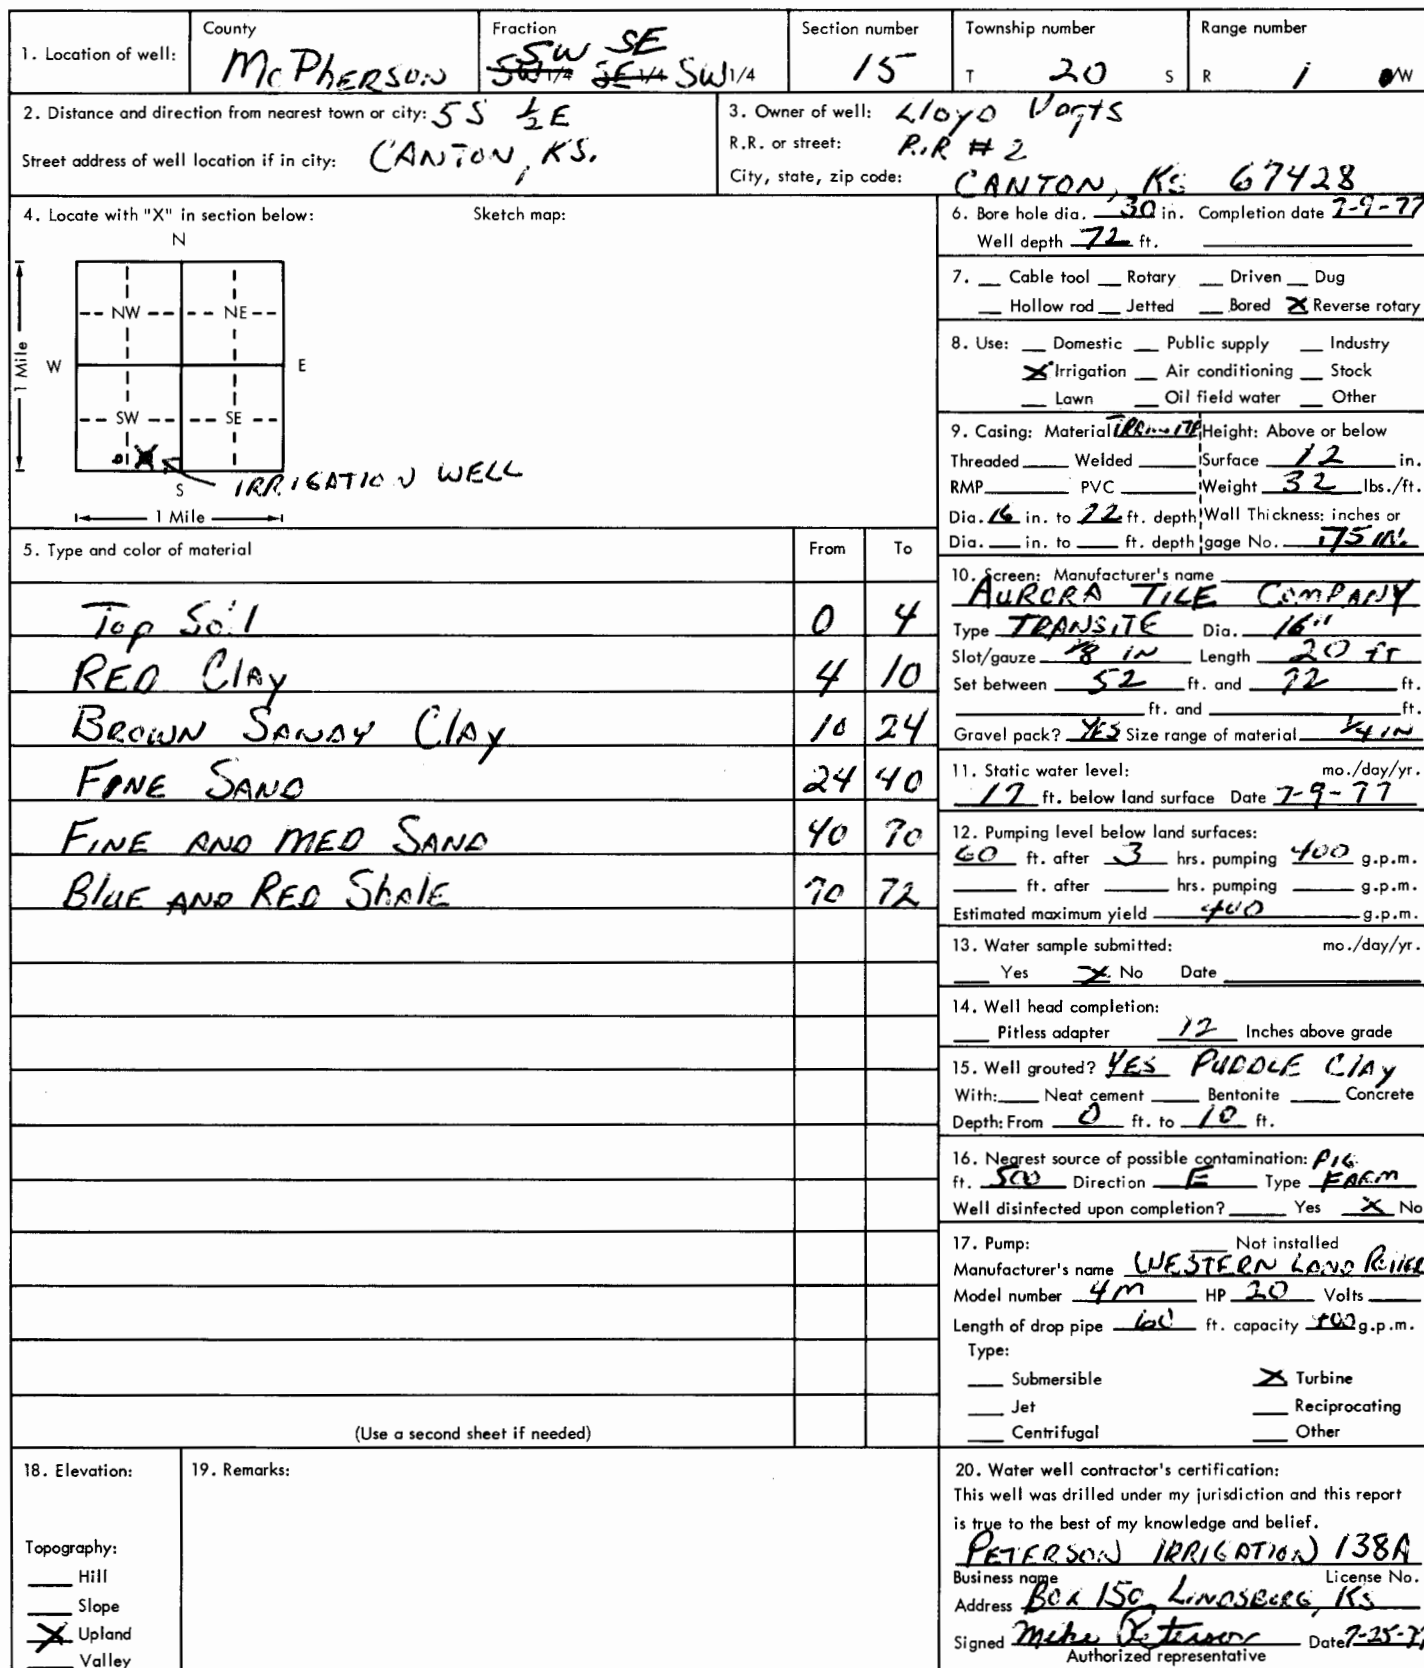 1. Location of well:
County
McPherson
Fraction
SW SE
SW 1/4 SE 1/4 SW 1/4
Section number
15
Township number
T 20 S
Range number
R 1 W
2. Distance and direction from nearest town or city: 5 S 1/2 E
Street address of well location if in city: CANTON, KS.
3. Owner of well: Lloyd Vogts
R.R. or street: R.R # 2
City, state, zip code: CANTON, KS 67428
4. Locate with "X" in section below: Sketch map:
N
NW NE
W E
1 Mile
SW SE
S
IRRIGATION WELL
1 Mile
5. Type and color of material From To
Top Soil 0 4
RED Clay 4 10
BROWN SANDY Clay 10 24
FINE SAND 24 40
FINE AND MED SAND 40 70
Blue AND RED Shale 70 72
(Use a second sheet if needed)
6. Bore hole dia. 30 in. Completion date 7-9-77
Well depth 72 ft.
7. Cable tool Rotary Driven Dug
Hollow rod Jetted Bored X Reverse rotary
8. Use: Domestic Public supply Industry
X Irrigation Air conditioning Stock
Lawn Oil field water Other
9. Casing: Material Height: Above or below
Threaded Welded Surface 12 in.
RMP PVC Weight 32 lbs./ft.
Dia. 16 in. to 72 ft. depth Wall Thickness: inches or
Dia. in. to ft. depth gage No. .175 IN.
10. Screen: Manufacturer's name
AURORA TILE COMPANY
Type TRANSITE Dia. 16"
Slot/gauze 1/8 IN Length 20 FT
Set between 52 ft. and 72 ft.
ft. and ft.
Gravel pack? YES Size range of material 1/4 IN
11. Static water level: mo./day/yr.
17 ft. below land surface Date 7-9-77
12. Pumping level below land surfaces:
60 ft. after 3 hrs. pumping 400 g.p.m.
ft. after hrs. pumping g.p.m.
Estimated maximum yield 400 g.p.m.
13. Water sample submitted: mo./day/yr.
Yes X No Date
14. Well head completion:
Pitless adapter 12 Inches above grade
15. Well grouted? YES PUDDLE Clay
With: Neat cement Bentonite Concrete
Depth: From 0 ft. to 10 ft.
16. Nearest source of possible contamination: PIG
ft. 500 Direction E Type FARM
Well disinfected upon completion? Yes X No
17. Pump: Not installed
Manufacturer's name WESTERN LAND ROLLER
Model number 4M HP 20 Volts
Length of drop pipe 60 ft. capacity 400 g.p.m.
Type:
Submersible X Turbine
Jet Reciprocating
Centrifugal Other
18. Elevation:
Topography:
Hill
Slope
X Upland
Valley
19. Remarks:
20. Water well contractor's certification:
This well was drilled under my jurisdiction and this report
is true to the best of my knowledge and belief.
PETERSON IRRIGATION 138A
Business name License No.
Address BOX 150 LINDSBORG, KS
Signed Mike Peterson Date 7-25-77
Authorized representative